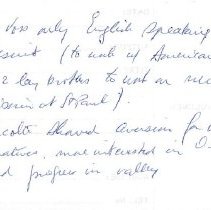 Voss only English speaking
(to work at American
2 lay brothers to work on
at St Paul).
showed aversion for
natives, more interested in
progress in valley